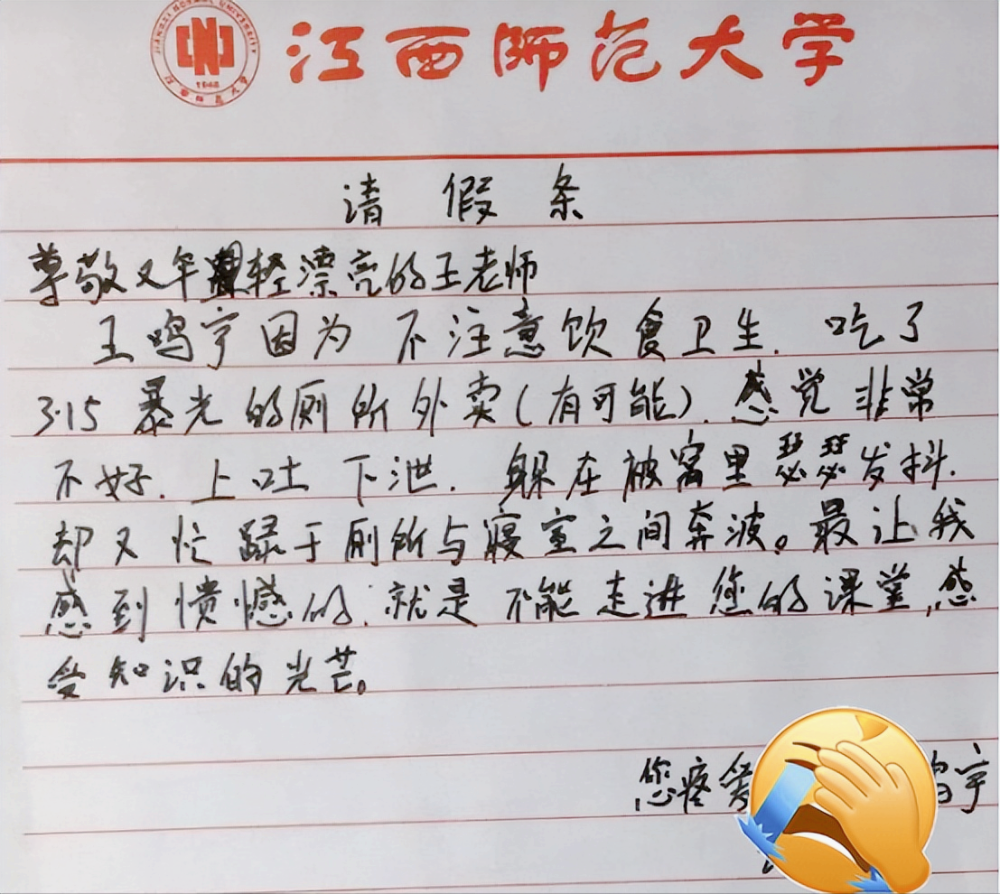 江西师范大学
请假条
尊敬又年轻漂亮的王老师
王鸣宇因为不注意饮食卫生.吃了
3.15暴光的厕所外卖(有可能).感觉非常
不好.上吐下泄.躲在被窝里瑟瑟发抖.
却又忙碌于厕所与寝室之间奔波。最让我
感到愤憾的.就是不能走进您的课堂,感
受知识的光芒。
您疼爱
宇